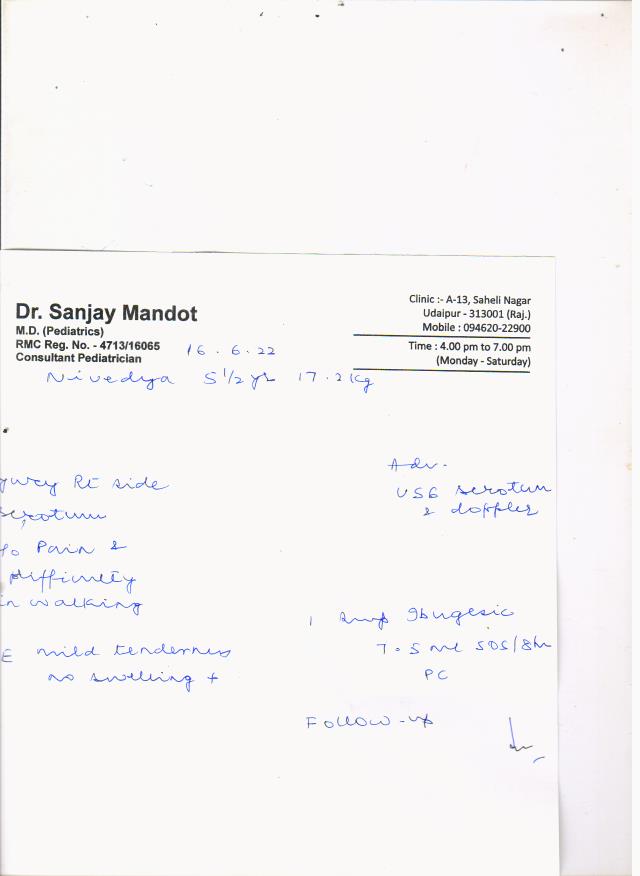 Dr. Sanjay Mandot
M.D. (Pediatrics)
RMC Reg. No. - 4713/16065
Consultant Pediatrician
Clinic :- A-13, Saheli Nagar
Udaipur - 313001 (Raj.)
Mobile : 094620-22900
Time : 4.00 pm to 7.00 pm
(Monday - Saturday)
16.6.22
Nivedya 5 1/2 yr 17.2 Kg
jury Rt side
scrotum
c/o Pain &
difficulty
in walking
E mild tenderness
no swelling +
Adv.
USG scrotum
& doppler
1 Syup Ibugesic
7.5 ml SOS/8hr
PC
Follow-up